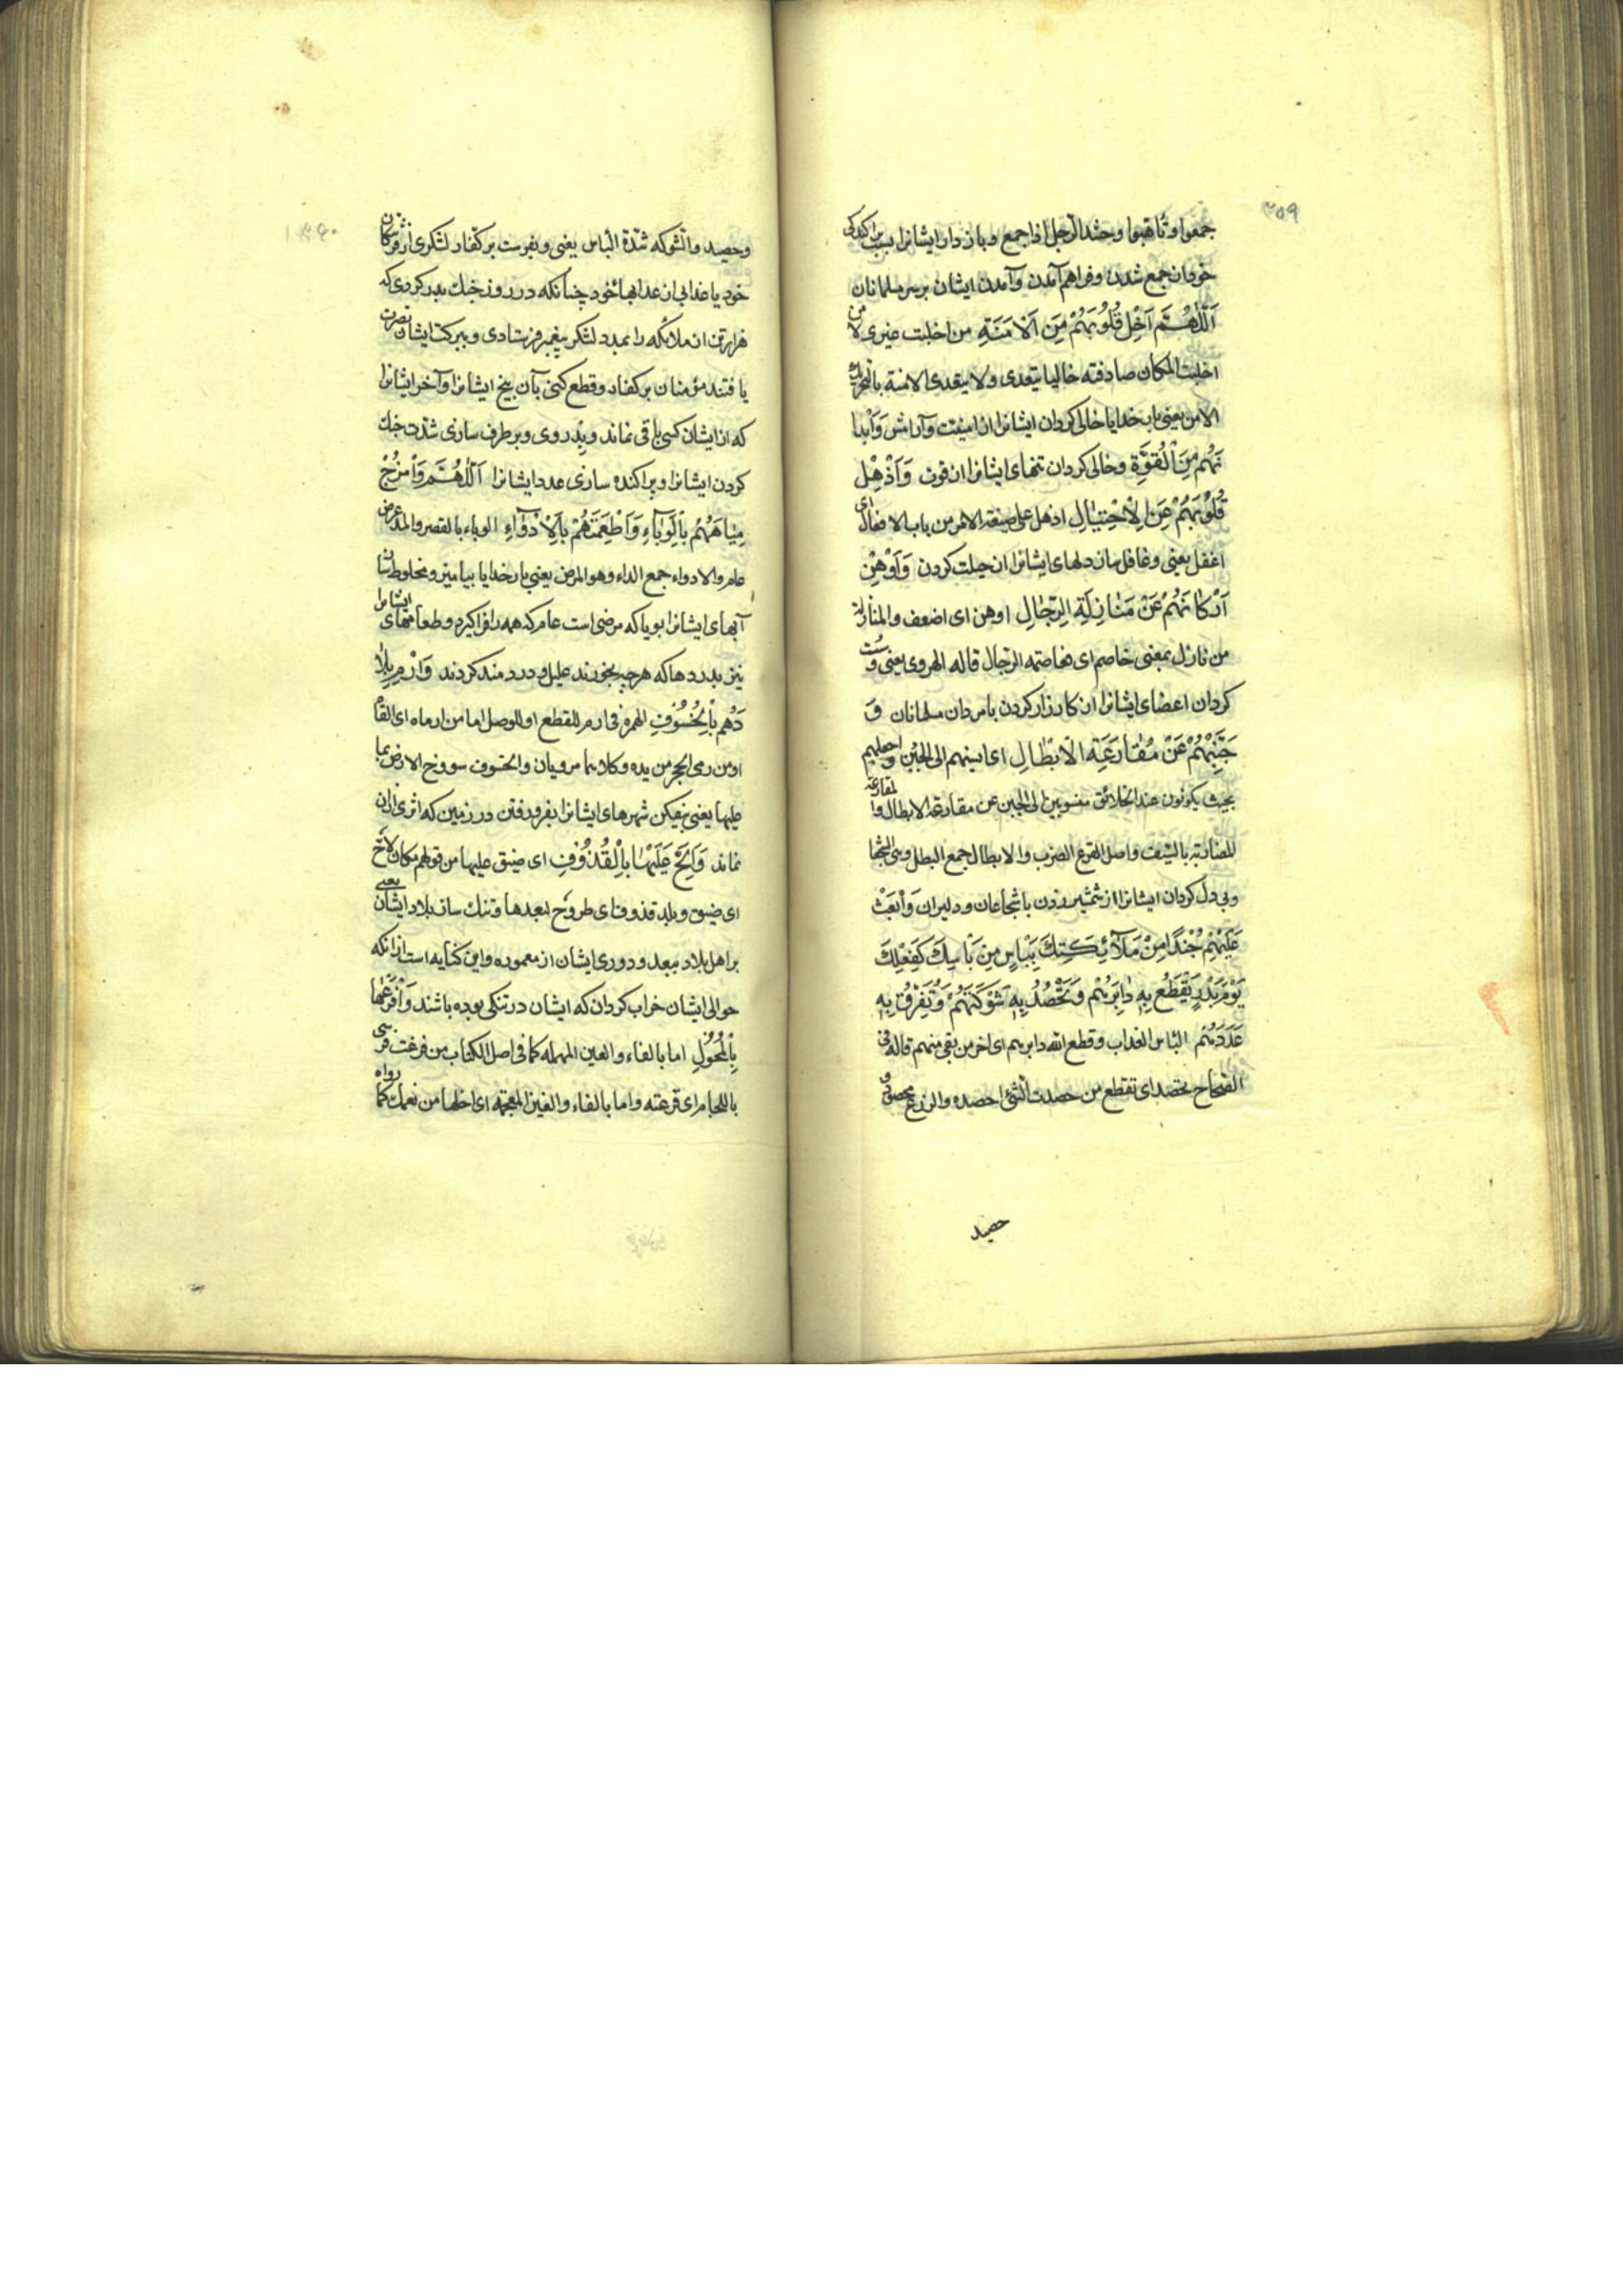 ۳۵۹
جمعوا و تأهبوا و حشد الرجل اذا جمع و باز دار ایشانرا بسبب پراکندگی
خودشان جمع شدن و فراهم آمدن و آمدن ایشان بر سر مسلمانان
اَللّٰهُمَّ اَخْلِ قُلُوبَهُمْ مِنَ الْاَمَنَةِ من اخلیت غیری لا من
اخلیت المکان صادفته خالیا یتعدی ولا یتعدی الامنة بالتحریک
الامن یعنی بار خدایا خالی گردان ایشانرا از امنیت و آرامش وَاَبْدا
نَهُمْ مِنَ الْقُوَّةِ و خالی گردان تنهای ایشانرا از قوت وَاَذْهِلْ
قُلُوبَهُمْ عَنِ الْاِحْتِیٰالِ اذهل علی صیغة الامر من باب الافعال ای
اغفل یعنی و غافل ساز دلهای ایشانرا از حیلت کردن وَاَوْهِنْ
اَرْکٰانَهُمْ عَنْ مُنٰازِلَةِ الرِّجٰالِ اوهن ای اضعف والمنازلة
من نازل بمعنی خاصم ای مخاصمة الرجال قاله الهروی یعنی و سست
گردان اعضای ایشانرا از کارزار کردن با مردان مسلمانان وَ
جَبِّنْهُمْ عَنْ مُقٰارَعَةِ الْاَبْطٰالِ ای انسبهم الی الجبن و اجعلهم
بحیث یکونون عند الخلائق منسوبین الی الجبن عن مقارعة الابطال والمقارعة
المضاربة بالسیف و اصل القرع الضرب والابطال جمع البطل وهی الشجاع
و بی دل گردان ایشانرا از شمشیر زدن با شجاعان و دلیران وَابْعَثْ
عَلَیْهِمْ جُنْدًا مِنْ مَلٰٓائِکَتِکَ بِبَأْسٍ مِنْ بَأْسِکَ کَفِعْلِکَ
یَوْمَ بَدْرٍ تَقْطَعُ بِهِ دٰابِرَهُمْ وَتَحْصُدُ بِهِ شَوْکَتَهُمْ وَتُفَرِّقُ بِهِ
عَدَدَهُمْ البأس العذاب و قطع الله دابرهم ای اخر من بقی منهم قاله فی
الصحاح تحصد ای تقطع من حصدت الشئ احصده والزرع محصود و
حصید
۳۶۰
وحصید والشوکه شدّة البأس یعنی و بفرست بر کفار لشکری از فرشتگان
خود یا عذابی از عذابهاء خود چنانکه در روز جنک بدر کردی که
هزار تن از ملائکه را بمدد لشکر پیغمبر فرستادی و ببرکت ایشان نصرت
یافتند مؤمنان بر کفار و قطع کنی بآن بیخ ایشانرا و آخر ایشانرا
که از ایشان کسی باقی نماند و بدروی و برطرف سازی شدت جنک
کردن ایشانرا و پراکنده سازی عدد ایشانرا اَللّٰهُمَّ وَامْزُجْ
مِیٰاهَهُمْ بِالْوَبٰاءِ وَاَطْعِمَتَهُمْ بِالْاَدْوٰاءِ الوباء بالقصر والمد مرض
عام والادواء جمع الداء وهو المرض یعنی بار خدایا بیامیز و مخلوط ساز
آبهای ایشانرا بوبا که مرضی است عام که همه را فرا گیرد و طعامهای ایشانرا
نیز بدردها که هر چه بخورند علیل و دردمند گردند وَارْمِ بِلٰا
دَهُمْ بِالْخُسُوفِ الهمزة فی ارم للقطع او للوصل اما من ارماه ای القاه
او من رمی الحجر من یده و کلاهما مرویان والخسوف سووخ الارض بما
علیها یعنی بیفکن شهرهای ایشانرا بفرو رفتن در زمین که اثری از آن
نماند وَاَلِحَّ عَلَیْهٰا بِالْقُذُوفِ ای ضیق علیها من قولهم مکان لاحّ
ای ضیق و بلد قذوف ای طروح لبعدها و تنک ساز بلاد ایشان یعنی
بر اهل بلاد ببعد و دوری ایشان از معموره و این کنایه است از آنکه
حوالی ایشان خراب گردان که ایشان در تنکی بوده باشند وَافْرَعْهٰا
بِالْمُحُولِ اما بالفاء والعین المهمله کما فی اصل الکتاب من فرعت فرسی
باللجام ای قرعته و اما بالفاء والغین المعجمة ای اخلها من نعمک کما رواه